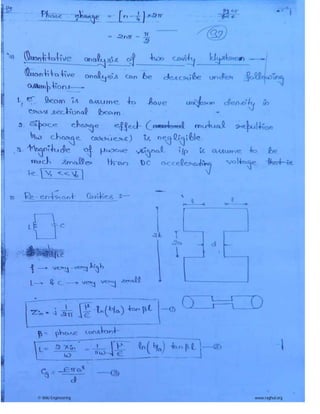 Phase change = [n - 1/4] × 2π
= 2nπ - π/2
(37)
Quantitative analysis of two cavity klystron
Quantitative analysis can be describe under following
assumptions:-
1, e⁻ Beam is assume to have uniform density in
cross sectional beam
2. Space charge effect ( mutual repulsion
charge carriers) is negligible.
3. Magnitude of μwave signal i/p is assume to be
much smaller than DC accelerating voltage that is
i.e. V₁ << V₀
Re-entrant Cavities :-
L
C
2b
2a
d
f → very-very high
L → & C → very very small
Z₀ = j 1/2π √μ/ε ln(b/a) tan βl —①
β = phase constant
L = 2 X₀/ω = 1/πω √μ/ε ln(b/a) tan βl —②
Cg = επa²/d —③
© WikiEngineering
www.raghul.org